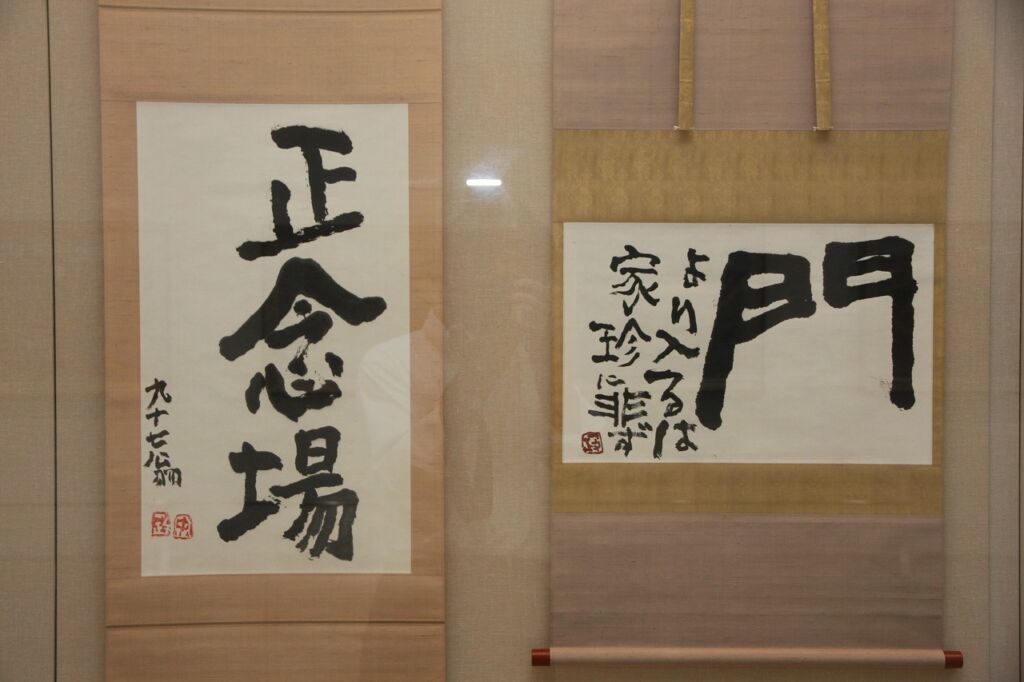 門
より入るは
家珍に非ず
正念場
九十七翁